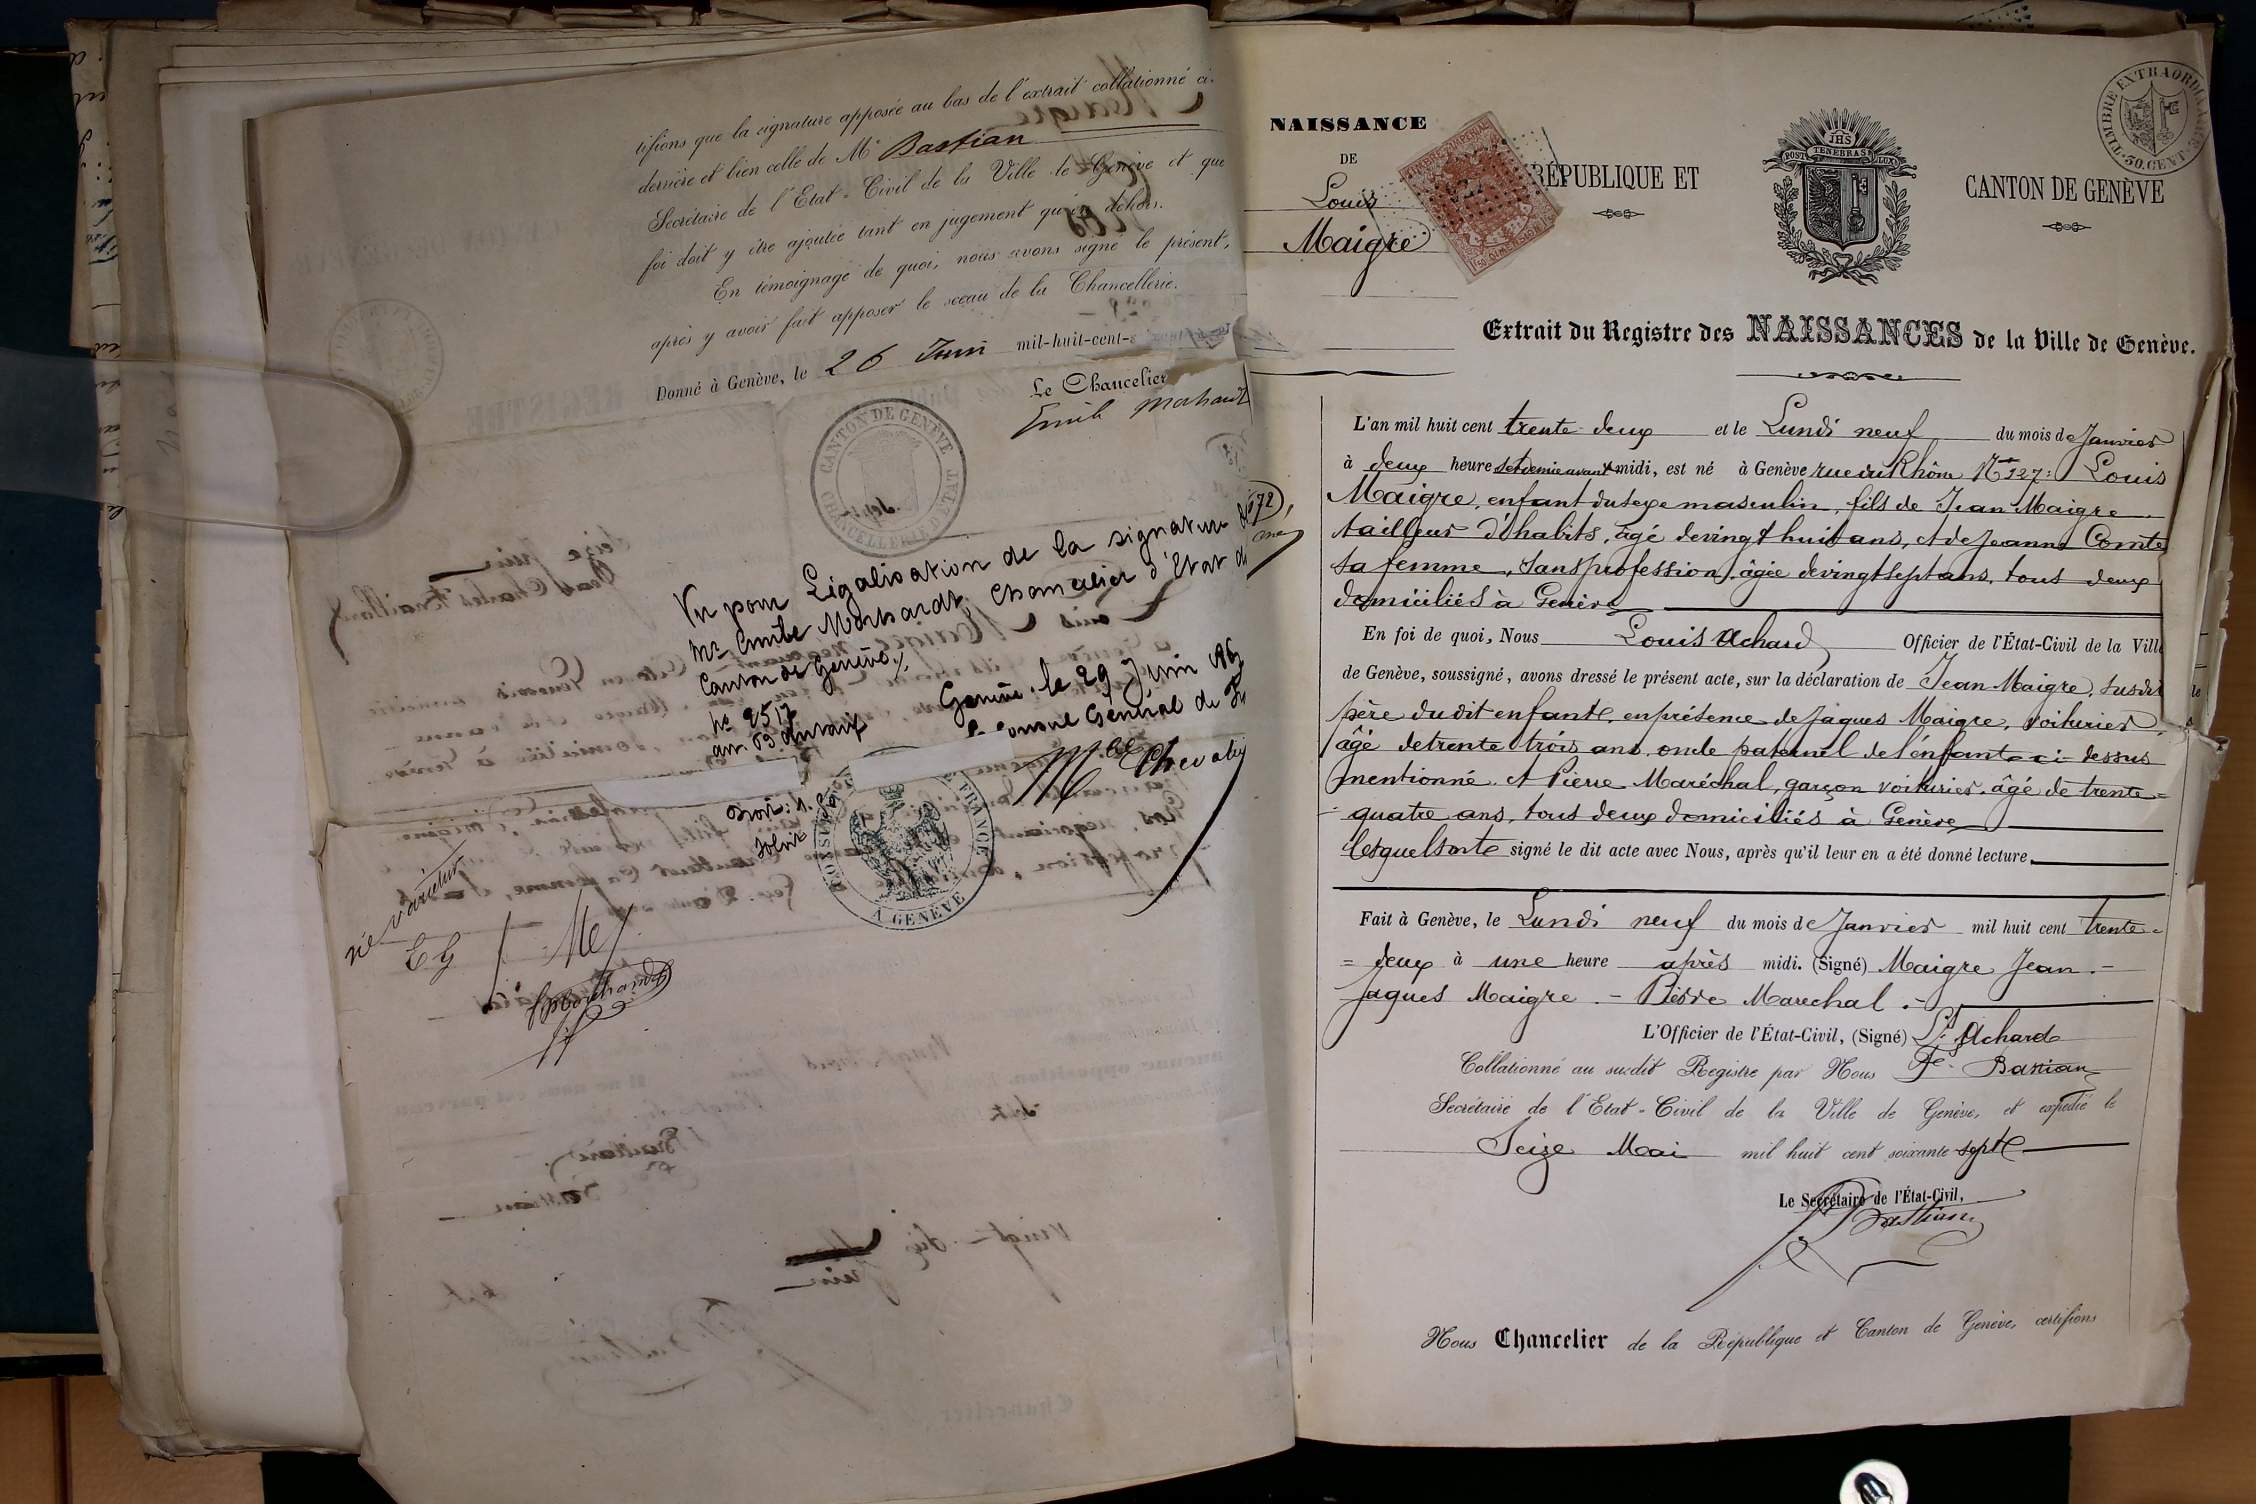 tifions que la signature apposée au bas de l'extrait collationné ci-
derrière est bien celle de Mr Bastian
Secrétaire de l'Etat-Civil de la Ville de Genève et que
foi doit y être ajoutée tant en jugement qu'en dehors.
En témoignage de quoi, nous avons signé le présent,
après y avoir fait apposer le sceau de la Chancellerie.
Donné à Genève, le 26 Juin mil-huit-cent-s
Le Chancelier
CANTON DE GENÈVE
CHANCELLERIE D'ETAT
Vu pour Légalisation de la signature de
Mr Emile Morhardt, Chancelier d'Etat du
Canton de Genève
Genève, le 29 Juin 186
No 2517
Le Consul Général de Fr
CONSULAT
FRANCE
A GENÈVE
ne varietur
EG
NAISSANCE
DE
Louis
Maigre
TIMBRE IMPERIAL
RÉPUBLIQUE ET
JHS
POST TENEBRAS LUX
CANTON DE GENÈVE
TIMBRE EXTRAORDINAIRE
50. CENT.
Extrait du Registre des NAISSANCES de la Ville de Genève.
L'an mil huit cent trente deux et le Lundi neuf du mois de Janvier
à deux heures et demie avant midi, est né à Genève rue du Rhône No 127: Louis
Maigre, enfant du sexe masculin, fils de Jean Maigre
tailleur d'habits, âgé de vingt huit ans, et de Jeanne Comte
sa femme, sans profession, âgée de vingt sept ans, tous deux
domiciliés à Genève
En foi de quoi, Nous Louis Achard Officier de l'État-Civil de la Ville
de Genève, soussigné, avons dressé le présent acte, sur la déclaration de Jean Maigre, susdit
père du dit enfant, en présence de Jaques Maigre, voiturier,
âgé de trente trois ans, oncle paternel de l'enfant ci-dessus
mentionné et Pierre Maréchal, garçon voiturier, âgé de trente=
=quatre ans, tous deux domiciliés à Genève
lesquels ont signé le dit acte avec Nous, après qu'il leur en a été donné lecture.
Fait à Genève, le Lundi neuf du mois de Janvier mil huit cent trente=
=deux à une heure après midi. (Signé) Maigre Jean.-
Jaques Maigre.- Pierre Marechal.-
L'Officier de l'État-Civil, (Signé) Ls Achard
Collationné au susdit Registre par Nous Fs Bastian
Secrétaire de l'Etat-Civil de la Ville de Genève, et expédié le
Seize Mai mil huit cent soixante sept
Le Secrétaire de l'État-Civil,
Bastian
Nous Chancelier de la République et Canton de Genève, certifions